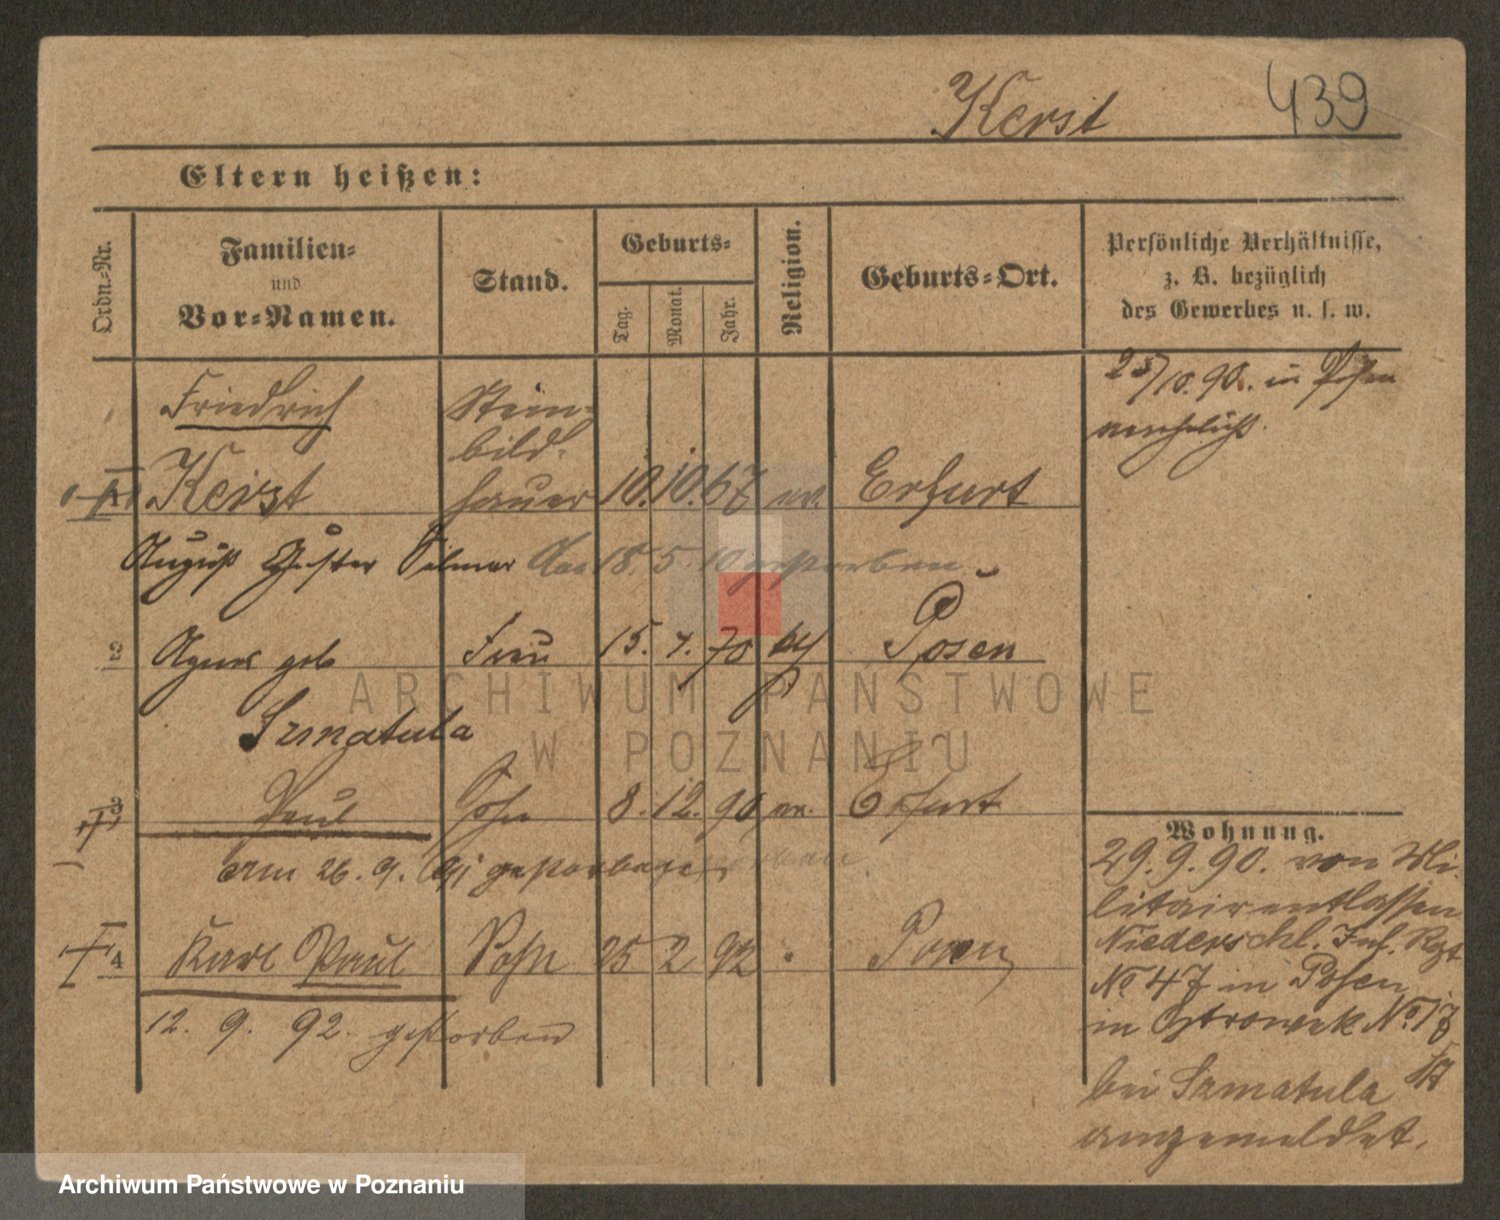 Kerst 439
Eltern heißen:
Ordn.-Nr.
Familien-
und
Vor-Namen.
Stand.
Geburts-
Tag.
Monat.
Jahr.
Religion.
Geburts-Ort.
Persönliche Verhältnisse,
z. B. bezüglich
des Gewerbes u. s. w.
25/10. 90. in Posen
verehelicht.
Friedrich Stein-
bild-
1 Kerst hauer 10. 10. 67 ev. Erfurt
August Gustav 18. 5. 10 gestorben
2 Agnes geb Frau 15. 7. 70 kth Posen
Szmatula
3 Paul Sohn 8. 12. 90 ev. Erfurt
am 26. 9. 91 gestorben
4 Karl Paul Sohn 25 2 92 " Posen
12. 9. 92. gestorben
Wohnung.
29. 9. 90. von Mi-
litair entlassen
Niederschl. Inf. Rgt
No 47 in Posen
in Ostrowek No 17
bei Szmatula
angemeldet.
ARCHIWUM PAŃSTWOWE
W POZNANIU
Archiwum Państwowe w Poznaniu